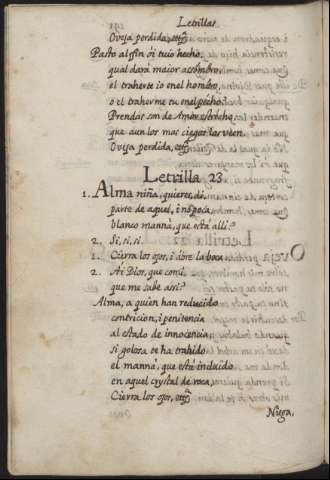 Letrillas.
Oveja perdida, etc.
Pasto al fin ói tuio hecho,
qual dará maior asombro,
el traherte io en el hombro,
o el traherme tu en el pecho?
Prendas son de Amor estrecho,
que aun los mas ciegos las vèen.
Oveja perdida, etc.
Letrilla 23.
1. Alma niña, quieres, di,
parte de aquel, i no poca,
blanco mannà, que està alli?
2. Si, si, si.
1. Cierra los ojos, i abre la boca.
2. Ai Dios, que comi,
que me sabe assi?
Alma, a quien han reducido
contricion, i penitencia
al estado de innocencia,
si golosa te ha trahido
el mannà, que està incluido
en aquel crystal de roca,
Cierra los ojos, etc.
Niega,